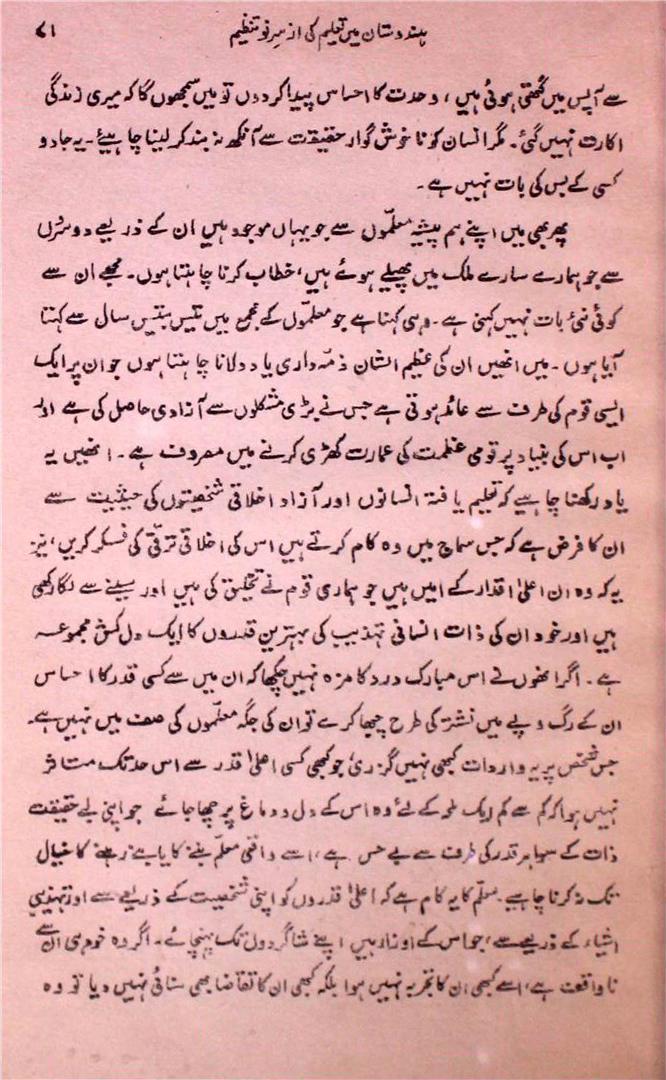 ہندوستان میں تعلیم کی از سرِ نو تنظیم ۷۱
سے آپس میں گتھی ہوئی ہیں، وحدت کا احساس پیدا کردوں تو میں سمجھوں گا کہ میری زندگی
اکارت نہیں گئی۔ مگر انسان کو ناخوش گوار حقیقت سے آنکھ نہ بند کرلینا چاہیئے۔ یہ جادو
کسی کے بس کی بات نہیں ہے۔
پھر بھی میں اپنے ہم پیشہ معلّموں سے جو یہاں موجود ہیں ان کے ذریعے دوسروں
سے جو ہمارے سارے ملک میں پھیلے ہوئے ہیں، خطاب کرنا چاہتا ہوں۔ مجھے ان سے
کوئی نئی بات نہیں کہنی ہے۔ وہی کہنا ہے جو معلّموں کے مجمع میں تیس بتیس سال سے کہتا
آیا ہوں۔ میں انھیں ان کی عظیم الشان ذمّہ داری یاد دلانا چاہتا ہوں جو ان پر ایک
ایسی قوم کی طرف سے عائد ہوتی ہے جس نے بڑی مشکلوں سے آزادی حاصل کی ہے اور
اب اس کی بنیاد پر قومی عظمت کی عمارت کھڑی کرنے میں مصروف ہے۔ انھیں یہ
یاد رکھنا چاہیے کہ تعلیم یافتہ انسانوں اور آزاد اخلاقی شخصیتوں کی حیثیت سے
ان کا فرض ہے کہ جس سماج میں وہ کام کرتے ہیں اس کی اخلاقی ترقّی کی فکر کریں، نیز
یہ کہ وہ ان اعلیٰ اقدار کے امیں ہیں جو ہماری قوم نے تخلیق کی ہیں اور سینے سے لگا رکھی
ہیں اور خود ان کی ذات انسانی تہذیب کی بہترین قدروں کا ایک دل کش مجموعہ
ہے۔ اگر انھوں نے اس مبارک درد کا مزہ نہیں چکھا کہ ان میں سے کسی قدر کا احساس
ان کے رگ و پے میں نشتر کی طرح چبھا کرے تو ان کی جگہ معلّموں کی صف میں نہیں ہے۔
جس شخص پر یہ واردات کبھی نہیں گزری، جو کبھی کسی اعلیٰ قدر سے اس حد تک متاثر
نہیں ہوا کہ کم سے کم ایک لمحہ کے لئے وہ اس کے دل و دماغ پر چھا جائے جو اپنی بے حقیقت
ذات کے سوا ہر قدر کی طرف سے بے حس ہے، اسے واقعی معلّم بننے کا یا بنے رہنے کا خیال
تک نہ کرنا چاہیے۔ معلّم کا یہ کام ہے کہ اعلیٰ قدروں کو اپنی شخصیت کے ذریعے سے اور تہذیبی
اشیاء کے ذریعے سے، جو اس کے اوزار ہیں اپنے شاگردوں تک پہنچائے۔ اگر وہ خود ہی ان سے
ناواقف ہے، اسے کبھی ان کا تجربہ نہیں ہوا بلکہ کبھی ان کا تقاضا بھی سنائی نہیں دیا تو وہ